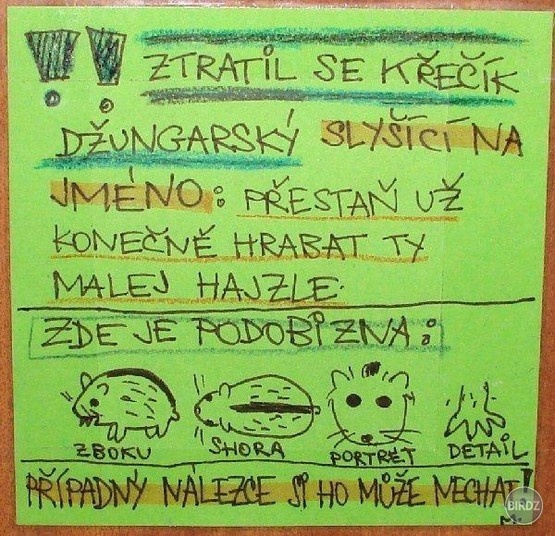 !! ZTRATIL SE KŘEČÍK
DŽUNGARSKÝ SLYŠÍCÍ NA
JMÉNO: PŘESTAŇ UŽ
KONEČNĚ HRABAT TY
MALEJ HAJZLE.
ZDE JE PODOBIZNA:
ZBOKU SHORA PORTRÉT DETAIL
PŘÍPADNÝ NÁLEZCE SI HO MŮŽE NECHAT!
BIRDZ